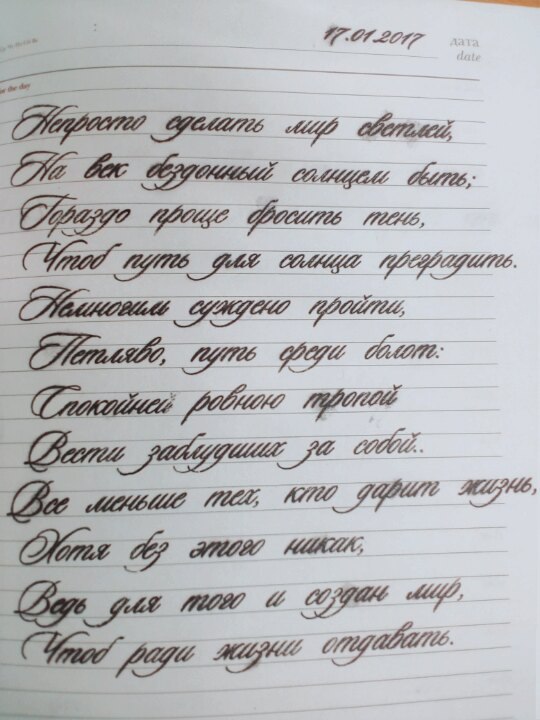 17.01.2017
дата
date
for the day
Непросто сделать мир светлей,
На век бездонный солнцем быть;
Гораздо проще бросить тень,
Чтоб путь для солнца преградить.
Немногим суждено пройти,
Петляво, путь среди болот:
Спокойней ровною тропой
Вести заблудших за собой..
Все меньше тех, кто дарит жизнь,
Хотя без этого никак,
Ведь для того и создан мир,
Чтоб ради жизни отдавать.